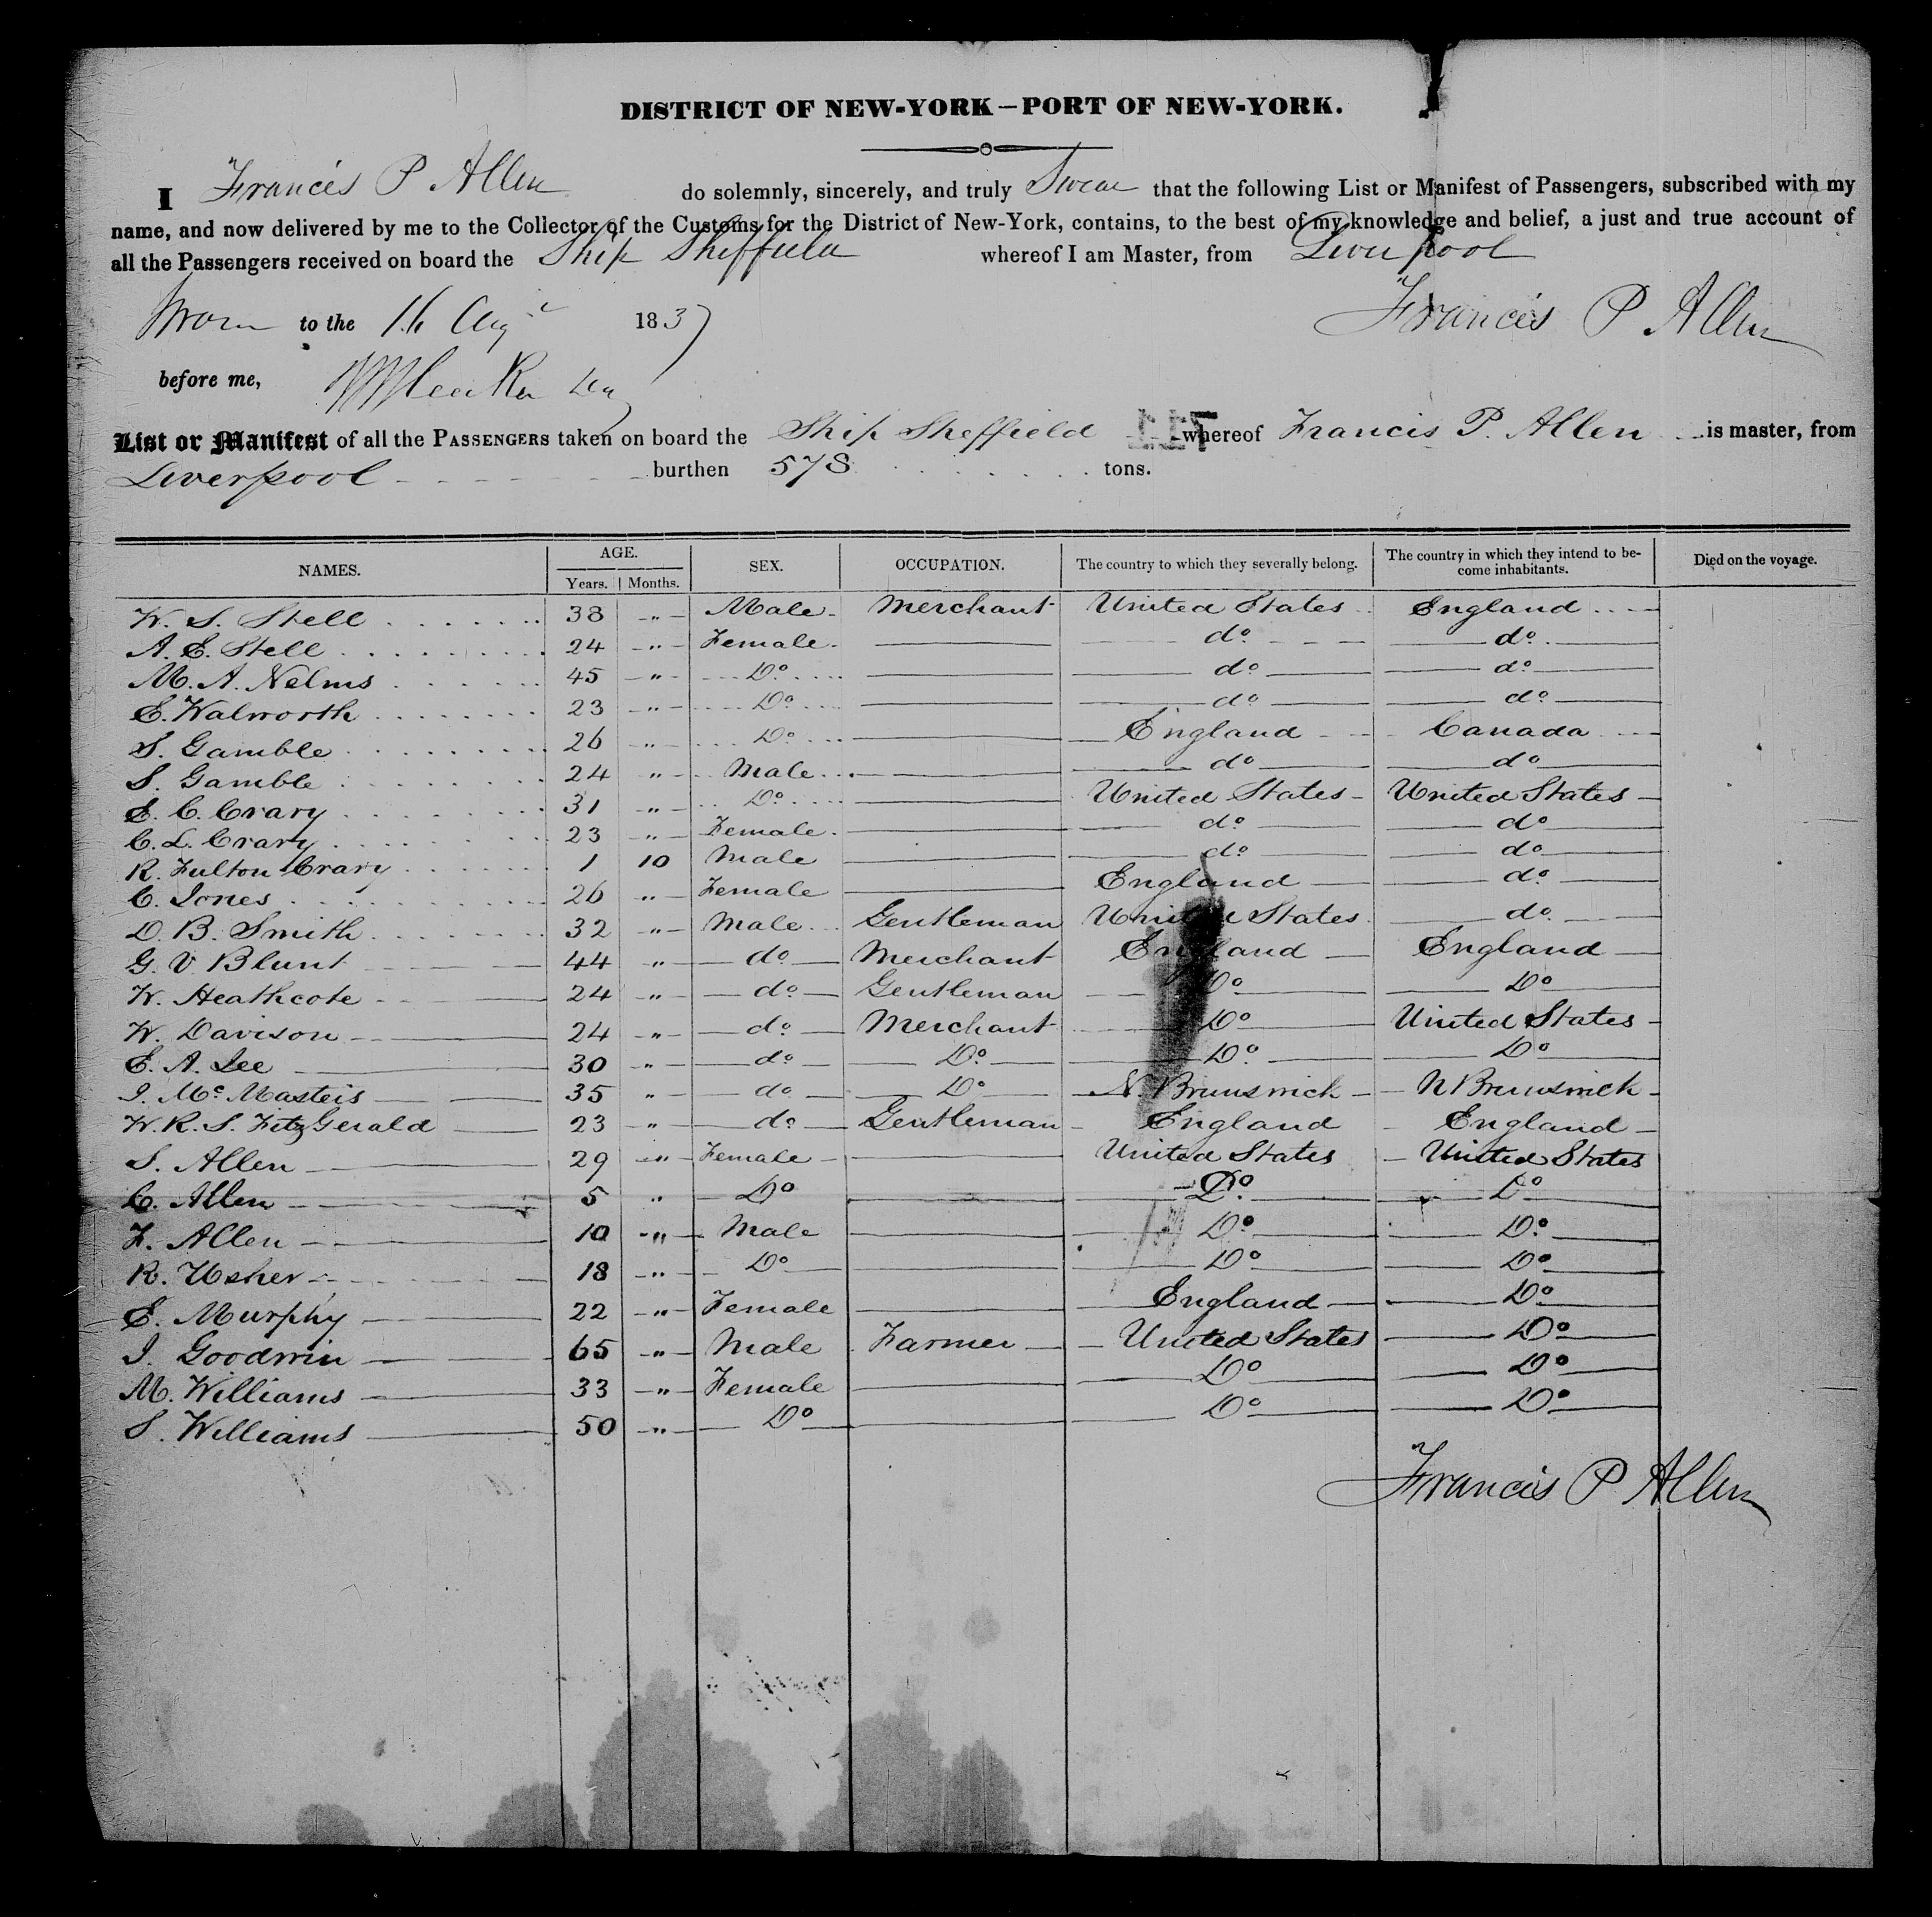 DISTRICT OF NEW-YORK—PORT OF NEW-YORK.
I Francis P Allen do solemnly, sincerely, and truly Swear that the following List or Manifest of Passengers, subscribed with my
name, and now delivered by me to the Collector of the Customs for the District of New-York, contains, to the best of my knowledge and belief, a just and true account of
all the Passengers received on board the Ship Sheffield whereof I am Master, from Liverpool
Sworn to the 16 Augt 1837 Francis P Allen
before me,
List or Manifest of all the PASSENGERS taken on board the Ship Sheffield whereof Francis P. Allen is master, from
Liverpool burthen 578 tons.
NAMES. AGE. Years. Months. SEX. OCCUPATION. The country to which they severally belong. The country in which they intend to become inhabitants. Died on the voyage.
W. S. Stell 38 " Male Merchant United States England
A. E. Stell 24 " Female do do
M. A. Nelms 45 " Do do do
E. Walworth 23 " Do do do
S. Gamble 26 " Do England Canada
S. Gamble 24 " Male do do
E. C. Crary 31 " Do United States United States
C. L. Crary 23 " Female do do
R. Fulton Crary 1 10 Male do do
C. Jones 26 " Female England do
D. B. Smith 32 " Male Gentleman United States do
G. V Blunt 44 " do Merchant England England
W. Heathcote 24 " do Gentleman Do Do
W. Davison 24 " do Merchant Do United States
E. A. Lee 30 " do Do Do Do
J. Mc Masters 35 " do Do N. Brunswick N Brunswick
W. R. S. FitzGerald 23 " do Gentleman England England
S. Allen 29 " Female United States United States
C. Allen 5 " Do Do Do
F. Allen 10 " Male Do Do
R. Usher 18 " Do Do Do
E. Murphy 22 " Female England Do
J. Goodwin 65 " Male Farmer United States Do
M. Williams 33 " Female Do Do
S. Williams 50 " Do Do Do
Francis P Allen